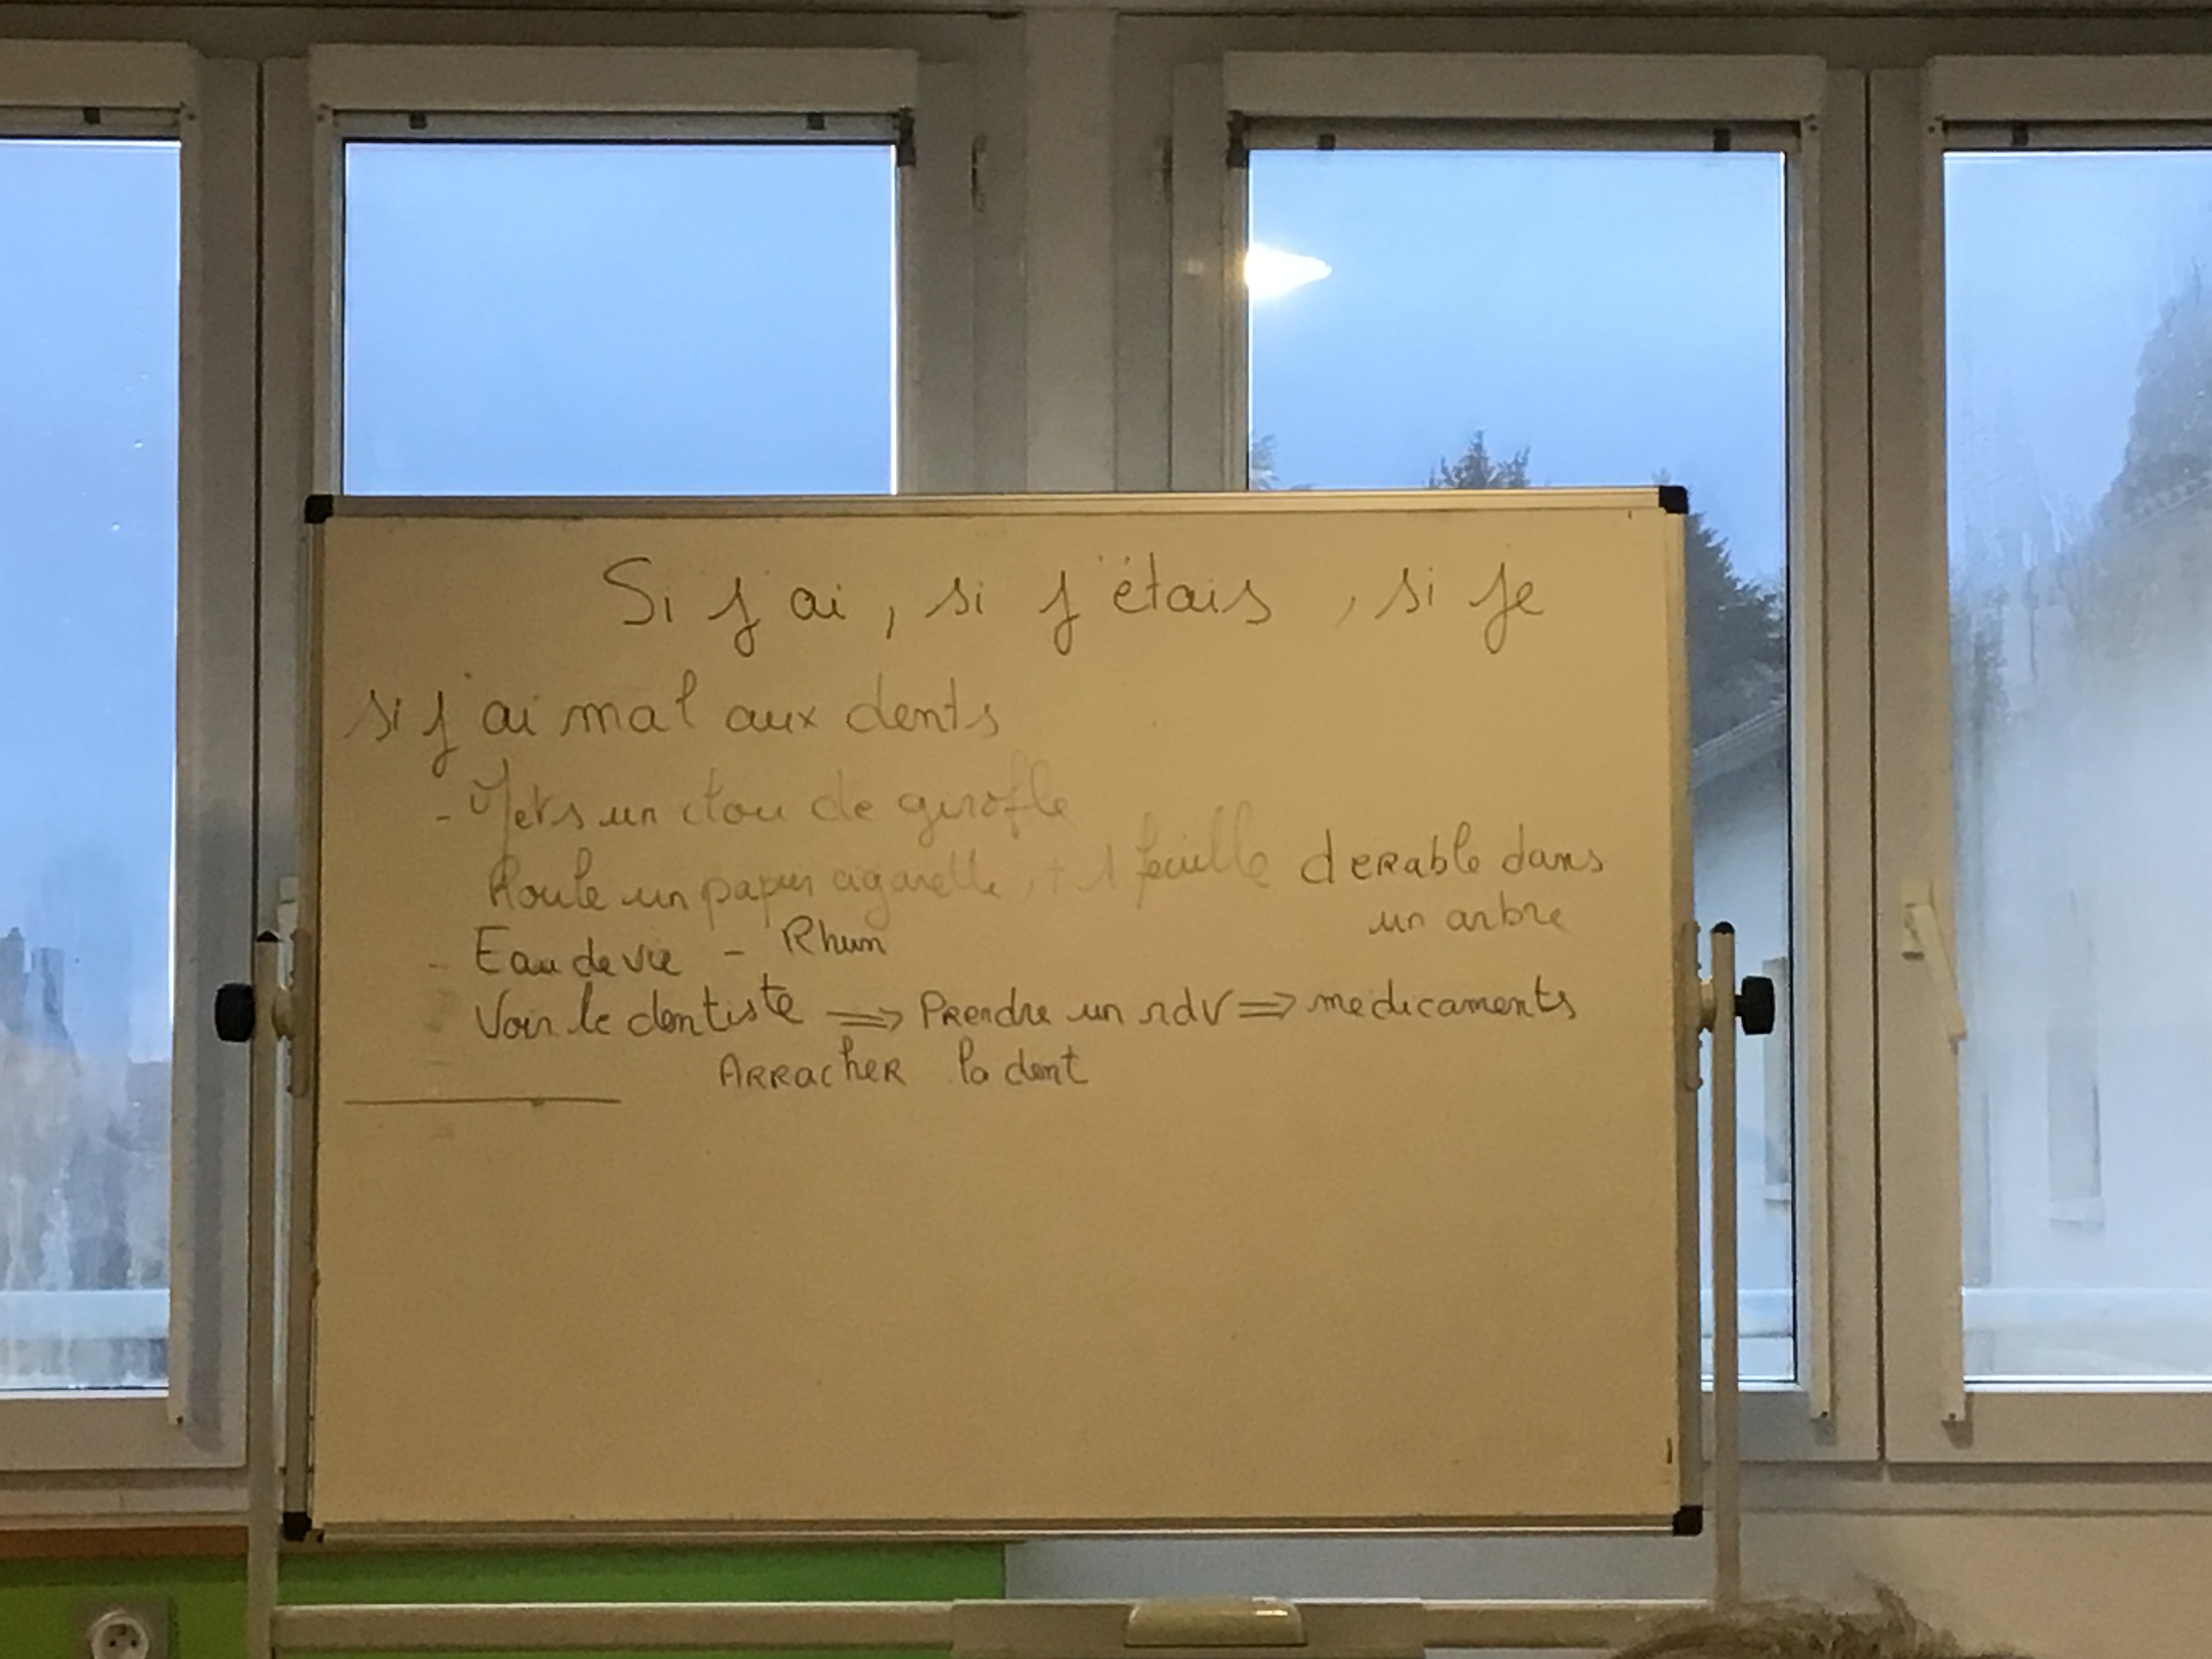 Si j'ai, si j'étais, si je
si j'ai mal aux dents
- Mets un clou de girofle
Roule un papier cigarette, + 1 feuille derable dans
un arbre
- Eau de vie - Rhum
Voir le dentiste => Prendre un rdv => medicaments
ARRacheR la dent